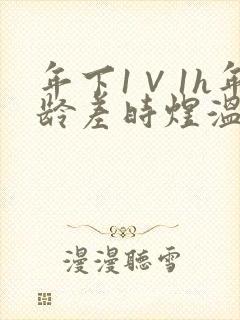 年下1V1h年
龄差时煜温
漫漫聽雪